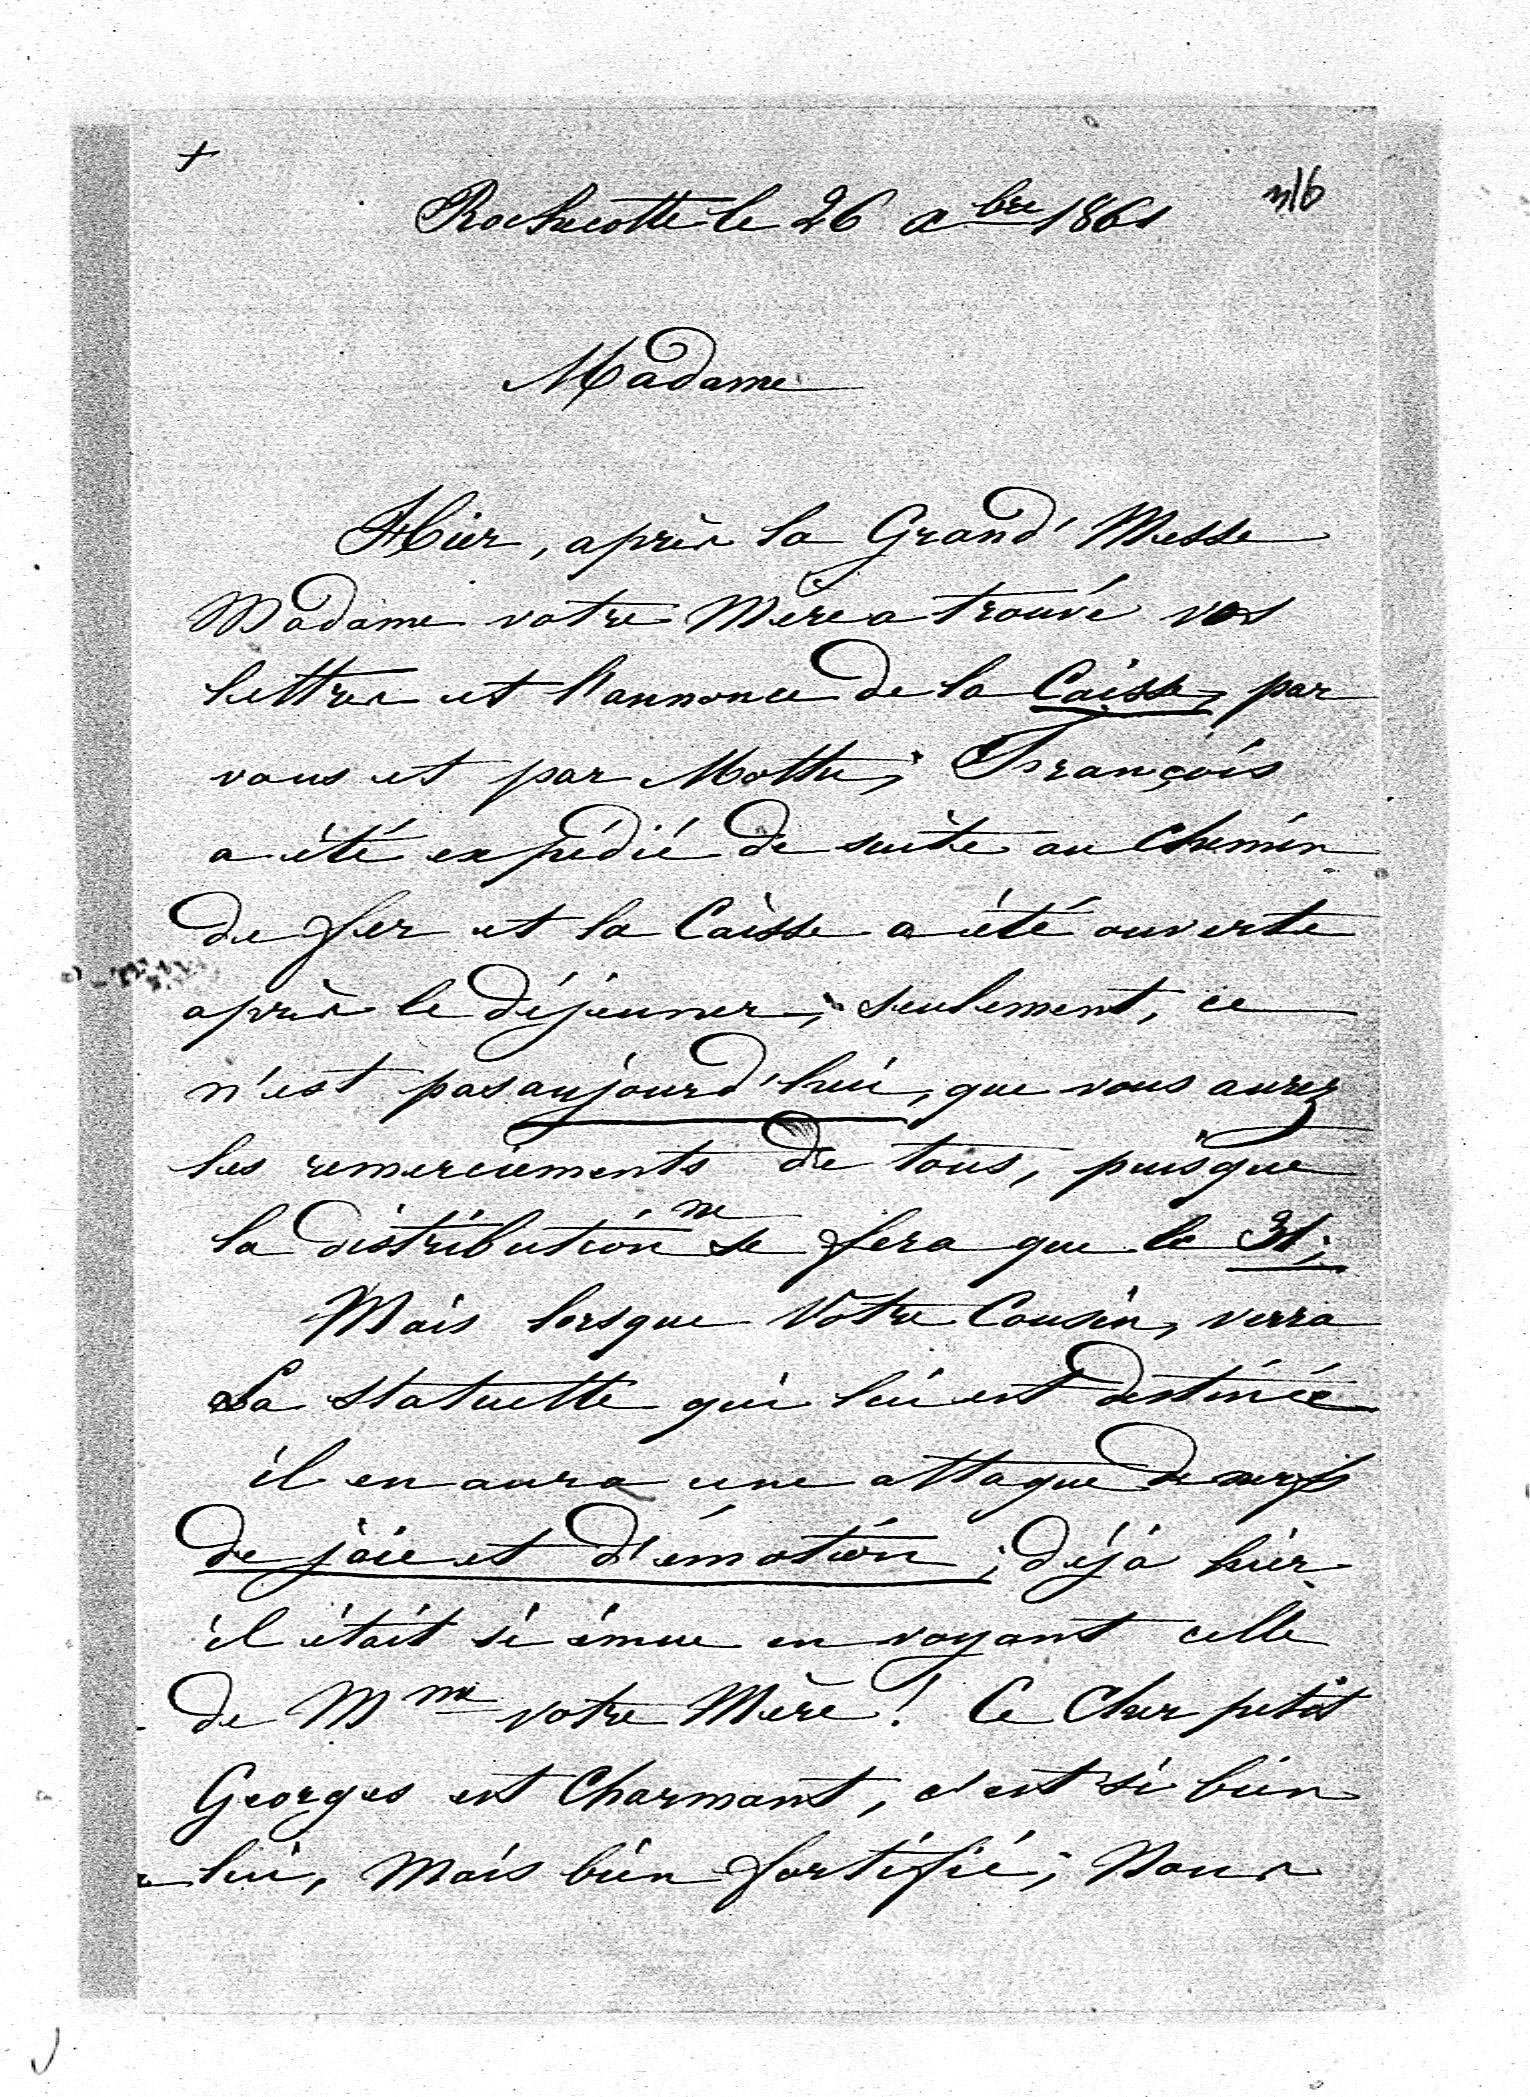 +
316
Rochecotte le 26 Xbre 1861
Madame
Hier, après la Grand' Messe
Madame votre Mère a trouvé vos
lettres et l'annonce de la Caisse, par
vous et par Mottu; François
a été expédié de suite au Chemin
de fer et la Caisse a été ouverte
après le déjeuner; seulement, ce
n'est pas aujourd'hui, que vous aurez
les remerciements de tous, puisque
la distribution ne se fera que le 31;
Mais lorsque Votre Cousin, verra
La statuette qui lui est destinée
il en aura une attaque de nerfs
de joie et d'émotion; déjà hier
il était si émue en voyant celle
de Mme votre Mère! Ce Cher petit
Georges est Charmant, c'est si bien
lui, Mais bien fortifié; Nous